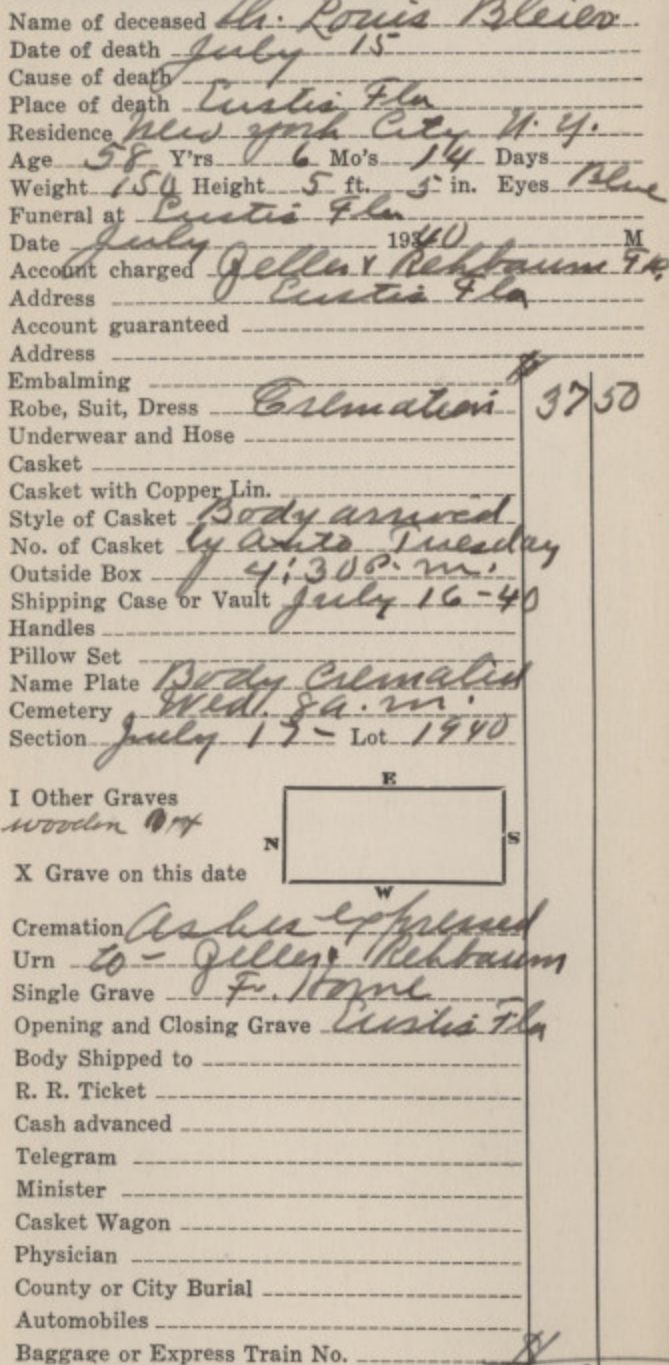 Name of deceased Mr. Louis Bleier
Date of death July 15
Cause of death
Place of death Eustis Fla
Residence New York City N.Y.
Age 58 Y'rs 6 Mo's 14 Days
Weight 150 Height 5 ft. 5 in. Eyes Blue
Funeral at Eustis Fla
Date July 1940 M
Account charged Zeller & Rehbaum F.H.
Address Eustis Fla
Account guaranteed
Address
Embalming
Robe, Suit, Dress Cremation $37 50
Underwear and Hose
Casket
Casket with Copper Lin.
Style of Casket Body arrived
No. of Casket by Auto Tuesday
Outside Box 4:30 P.m.
Shipping Case or Vault July 16-40
Handles
Pillow Set
Name Plate Body Cremated
Cemetery Wed. 8 a.m.
Section July 17- Lot 1940
E
I Other Graves
wooden box
N S
X Grave on this date
W
Cremation Ashes expressed
Urn to - Zeller & Rehbaum
Single Grave F. Home
Opening and Closing Grave Eustis Fla
Body Shipped to
R. R. Ticket
Cash advanced
Telegram
Minister
Casket Wagon
Physician
County or City Burial
Automobiles
Baggage or Express Train No.